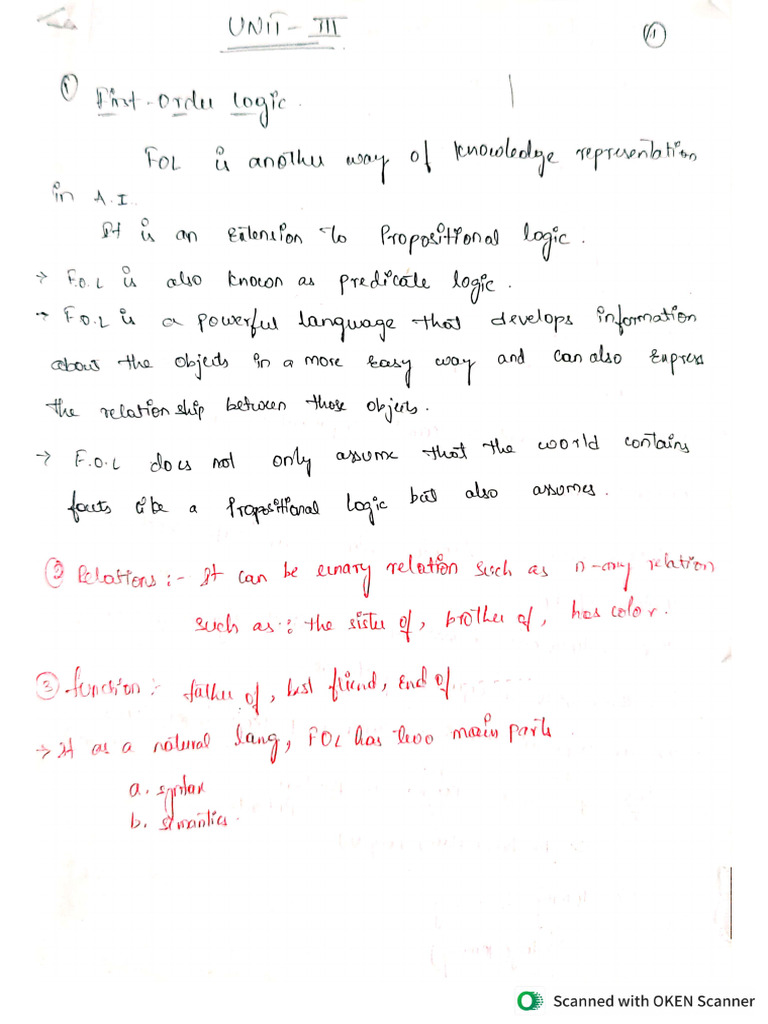 UNIT - III
1
① First-Order Logic.
FOL is another way of knowledge representation
in A.I.
It is an Extension to Propositional logic.
→ F.O.L is also known as predicate logic.
→ F.O.L is a powerful language that develops information
about the objects in a more easy way and can also Express
the relationship between those objects.
→ F.O.L does not only assume that the world contains
facts like a Propositional Logic but also assumes.
② Relations :- It can be unary relation such as n-any relation
such as : the sister of, brother of, has color.
③ function :- father of, best friend, End of
→ It as a natural lang, FOL has two main parts
a. syntax
b. semantics.
Scanned with OKEN Scanner